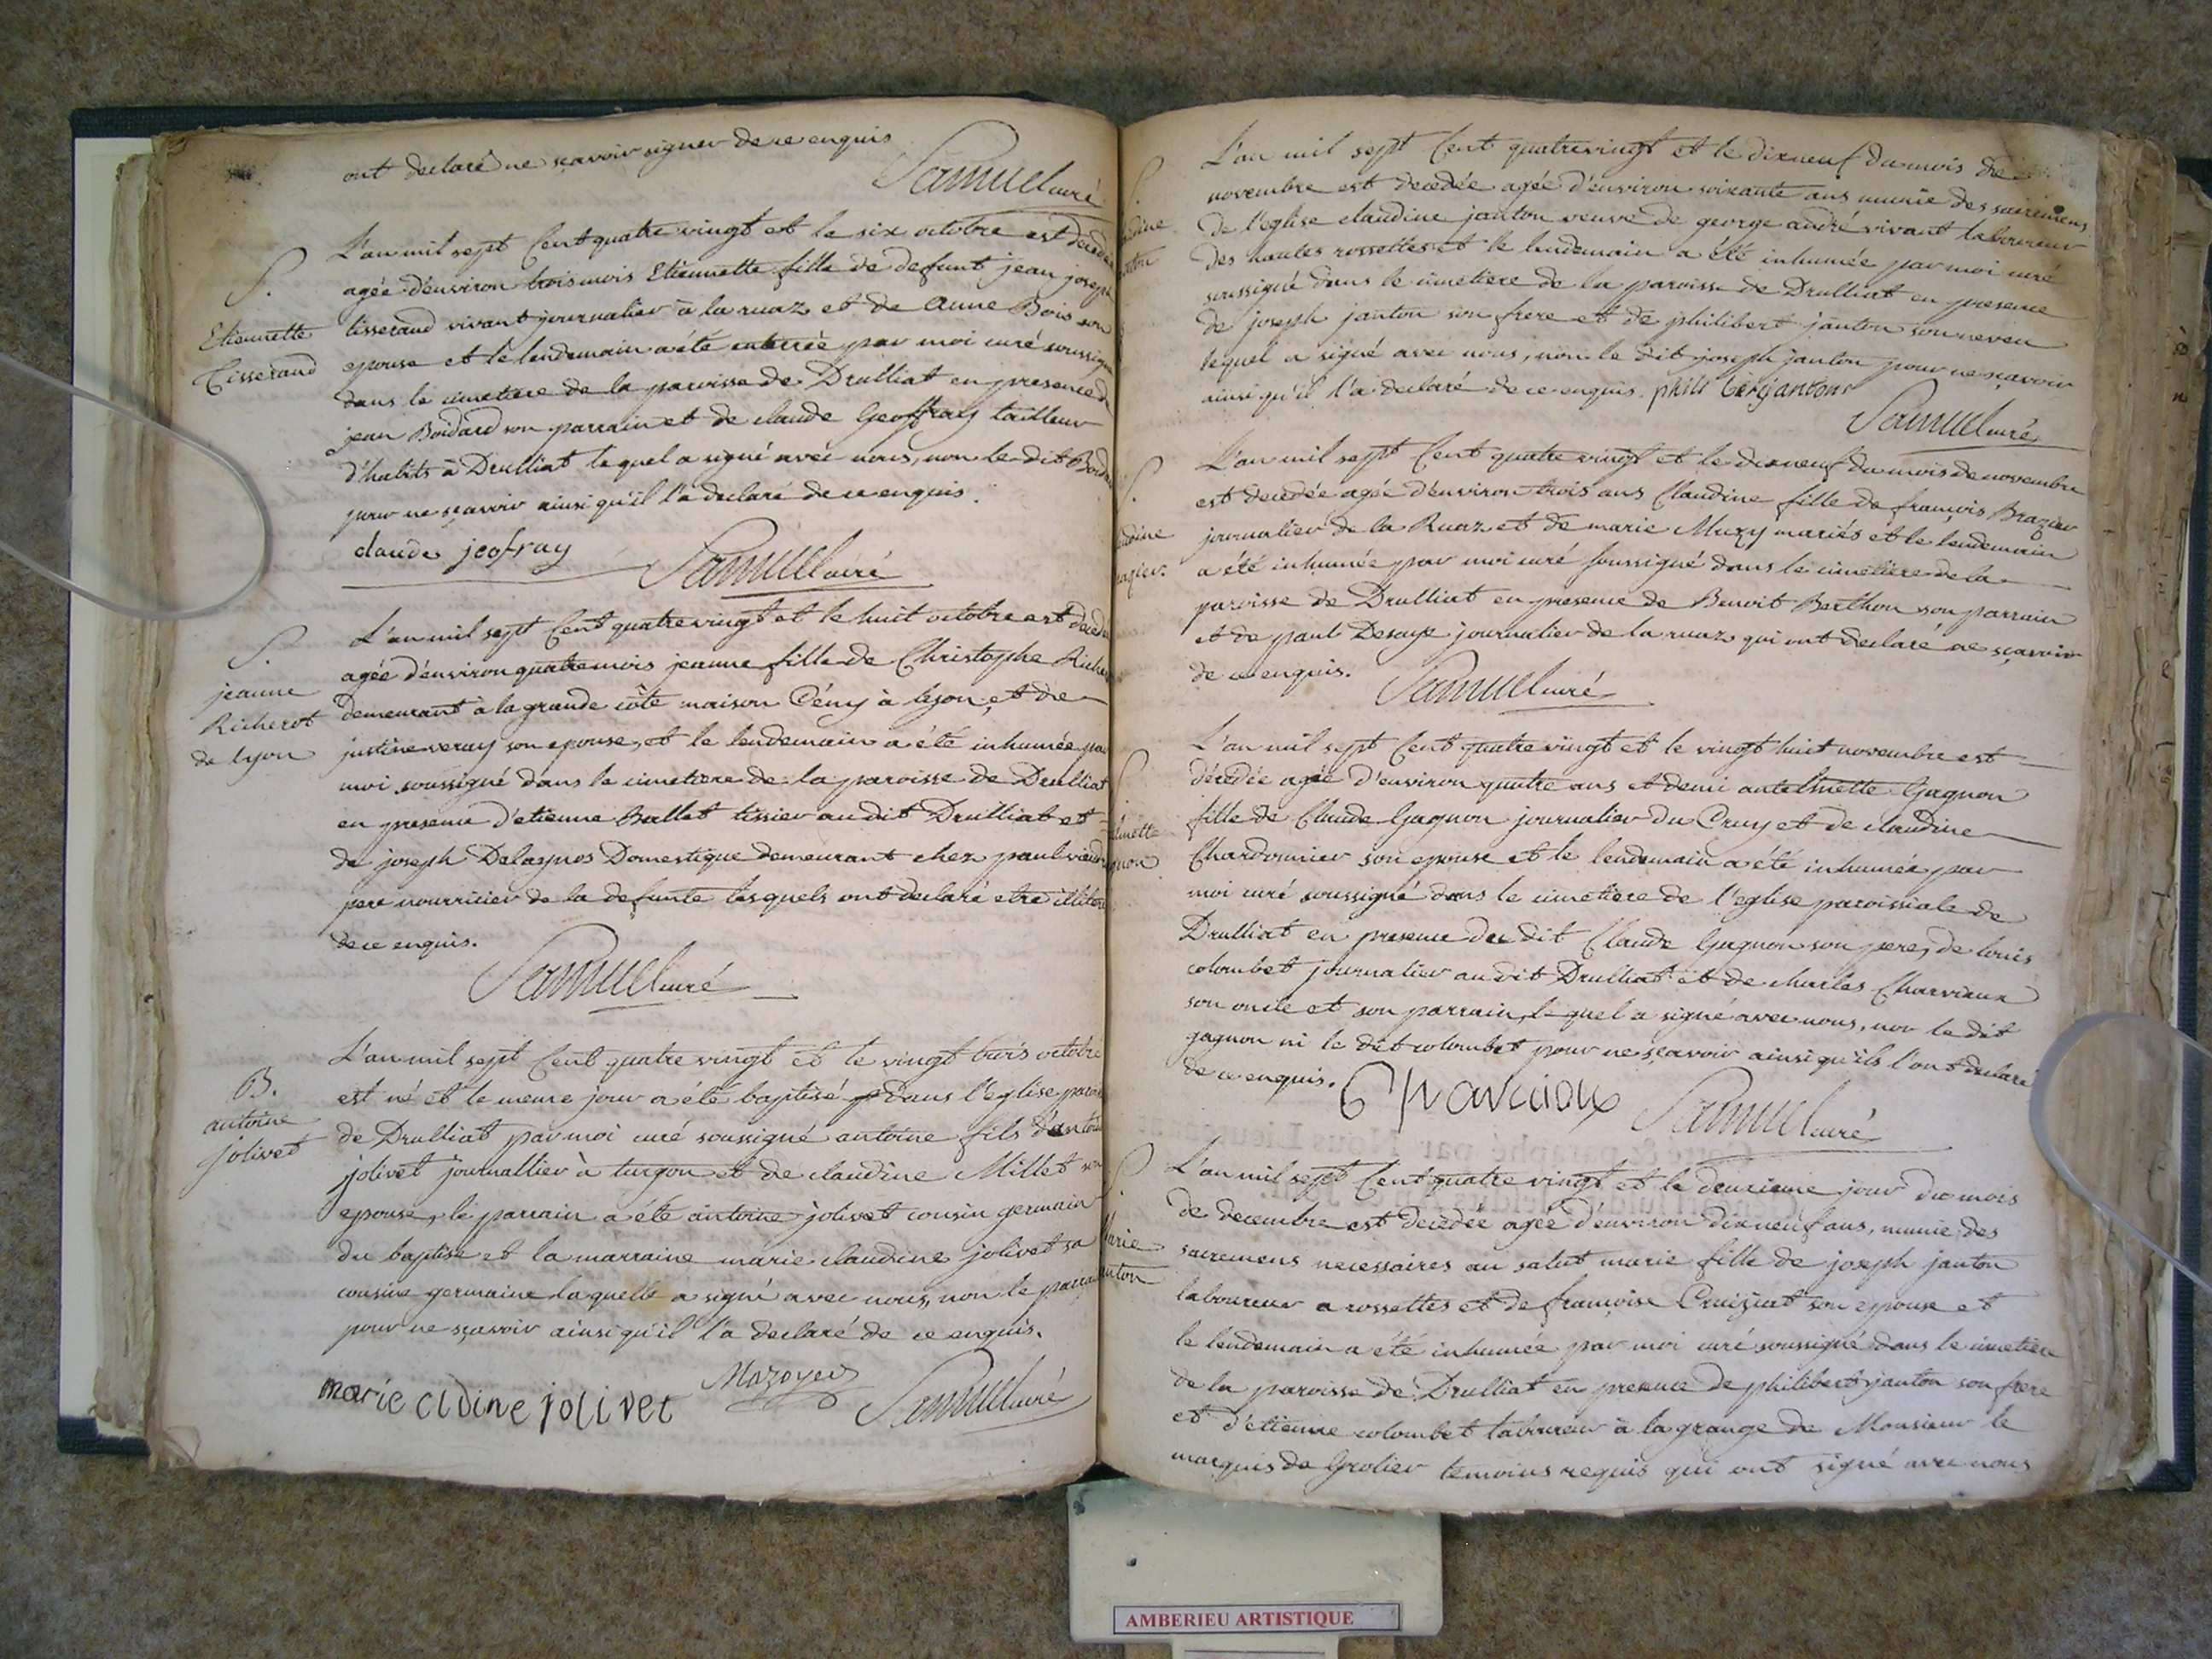 ont declaré ne sçavoir signer de ce enquis
Samuel curé
S.
Etiennette
Tisserand
L'an mil sept Cent quatre vingt et le six octobre est decedée
agée d'environ trois mois Etiennette fille de defunt jean joseph
tisserand vivant journalier à la ruaz et de anne Bois son
epouse et le lendemain a été enterrée par moi curé soussigné
dans le cimetiere de la paroisse de Drulliat en presence de
jean Boidard son parrain et de claude Geoffray tailleur
d'habits à Drulliat lequel a signé avec nous, non le dit
pour ne sçavoir ainsi qu'il l'a declaré de ce enquis.
claude jeofray Samuel curé
S.
jeanne
Richerot
de lyon
L'an mil sept Cent quatre vingt et le huit octobre est
agée d'environ quatre mois jeanne fille de Christophe
demeurant à la grande côte maison Cény à lyon, et de
justine veray son epouse, et le lendemain a été inhumée par
moi soussigné dans le cimetiere de la paroisse de Drulliat
en presence d'etienne Ballet tissier au dit Drulliat et
de joseph Delagnos Domestique demeurant chez paul
pere nourricier de la defunte lesquels ont declaré etre
de ce enquis.
Samuel curé
B.
antoine
jolivet
L'an mil sept Cent quatre vingt et le vingt trois octobre
est né et le meme jour a été baptisé dans l'eglise
de Drulliat par moi curé soussigné antoine fils d'antoine
jolivet journallier à turgon et de claudine Millet son
epouse, le parrain a été antoine jolivet cousin germain
du baptisé et la marraine marie claudine jolivet sa
cousine germaine laquelle a signé avec nous, non le
pour ne sçavoir ainsi qu'il l'a declaré de ce enquis.
marie cldine jolivet Mazoyer Samuel curé
S.
L'an mil sept Cent quatre vingt et le dixneuf du mois de
novembre est decedée agée d'environ soixante ans munie des sacremens
de l'eglise claudine janton veuve de george andré vivant laboureur
des hautes rossettes et le lendemain a été inhumée par moi curé
soussigné dans le cimetiere de la paroisse de Drulliat en presence
de joseph janton son frere et de philibert janton son neveu
lequel a signé avec nous, non le dit joseph janton pour ne sçavoir
ainsi qu'il l'a declaré de ce enquis. phili bert jantons
Samuel curé
S.
L'an mil sept Cent quatre vingt et le dixneuf du mois de novembre
est decedée agée d'environ trois ans Claudine fille de françois Brazier
journalier de la Ruaz et de marie Muzy mariés et le lendemain
a été inhumée par moi curé soussigné dans le cimetiere de la
paroisse de Drulliat en presence de Benoit Berthon son parrain
et de paul journalier de la ruaz qui ont declaré ne sçavoir
de ce enquis. Samuel curé
S.
L'an mil sept Cent quatre vingt et le vingt huit novembre est
décedée agée d'environ quatre ans et demi antelmette Gagnon
fille de Claude Gagnon journalier du Cruy et de claudine
Chardonnier son epouse et le lendemain a été inhumée par
moi curé soussigné dans le cimetiere de l'eglise paroissiale de
Drulliat en presence du dit Claude Gagnon son pere, de louis
colombet journalier au dit Drulliat et de charles Charvieux
son oncle et son parrain, lequel a signé avec nous, non le dit
gagnon ni le dit colombet pour ne sçavoir ainsi qu'ils l'ont declaré
de ce enquis. Charvioux Samuel curé
S.
Marie
janton
L'an mil sept Cent quatre vingt et le deuxieme jour du mois
de decembre est decedée agée d'environ dixneuf ans, munie des
sacremens necessaires au salut marie fille de joseph janton
laboureur a rossettes et de françoise Cruiziat son epouse et
le lendemain a été inhumée par moi curé soussigné dans le cimetiere
de la paroisse de Drulliat en presence de philibert janton son frere
et d'etienne colombet laboureur à la grange de Monsieur le
marquis de Grolier temoins requis qui ont signé avec nous
AMBERIEU ARTISTIQUE